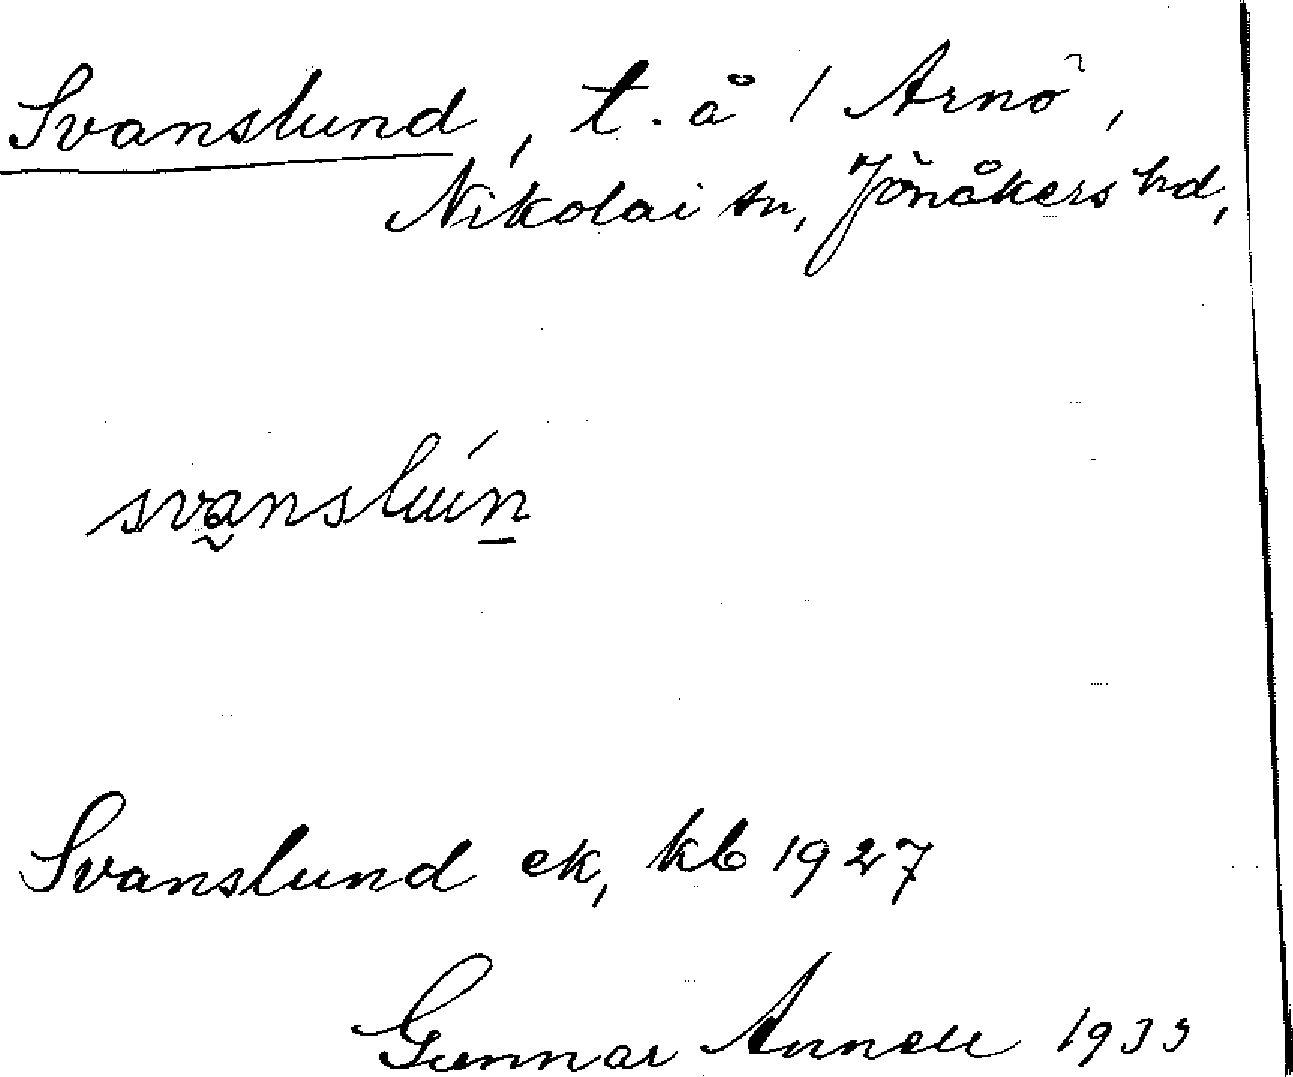 Svanslund, t. å / Arnö,
Nikolai sn, Jönåkers hd,
sva̰nslúṉ
Svanslund ek, kb 1927
Gunnar Annell 1933